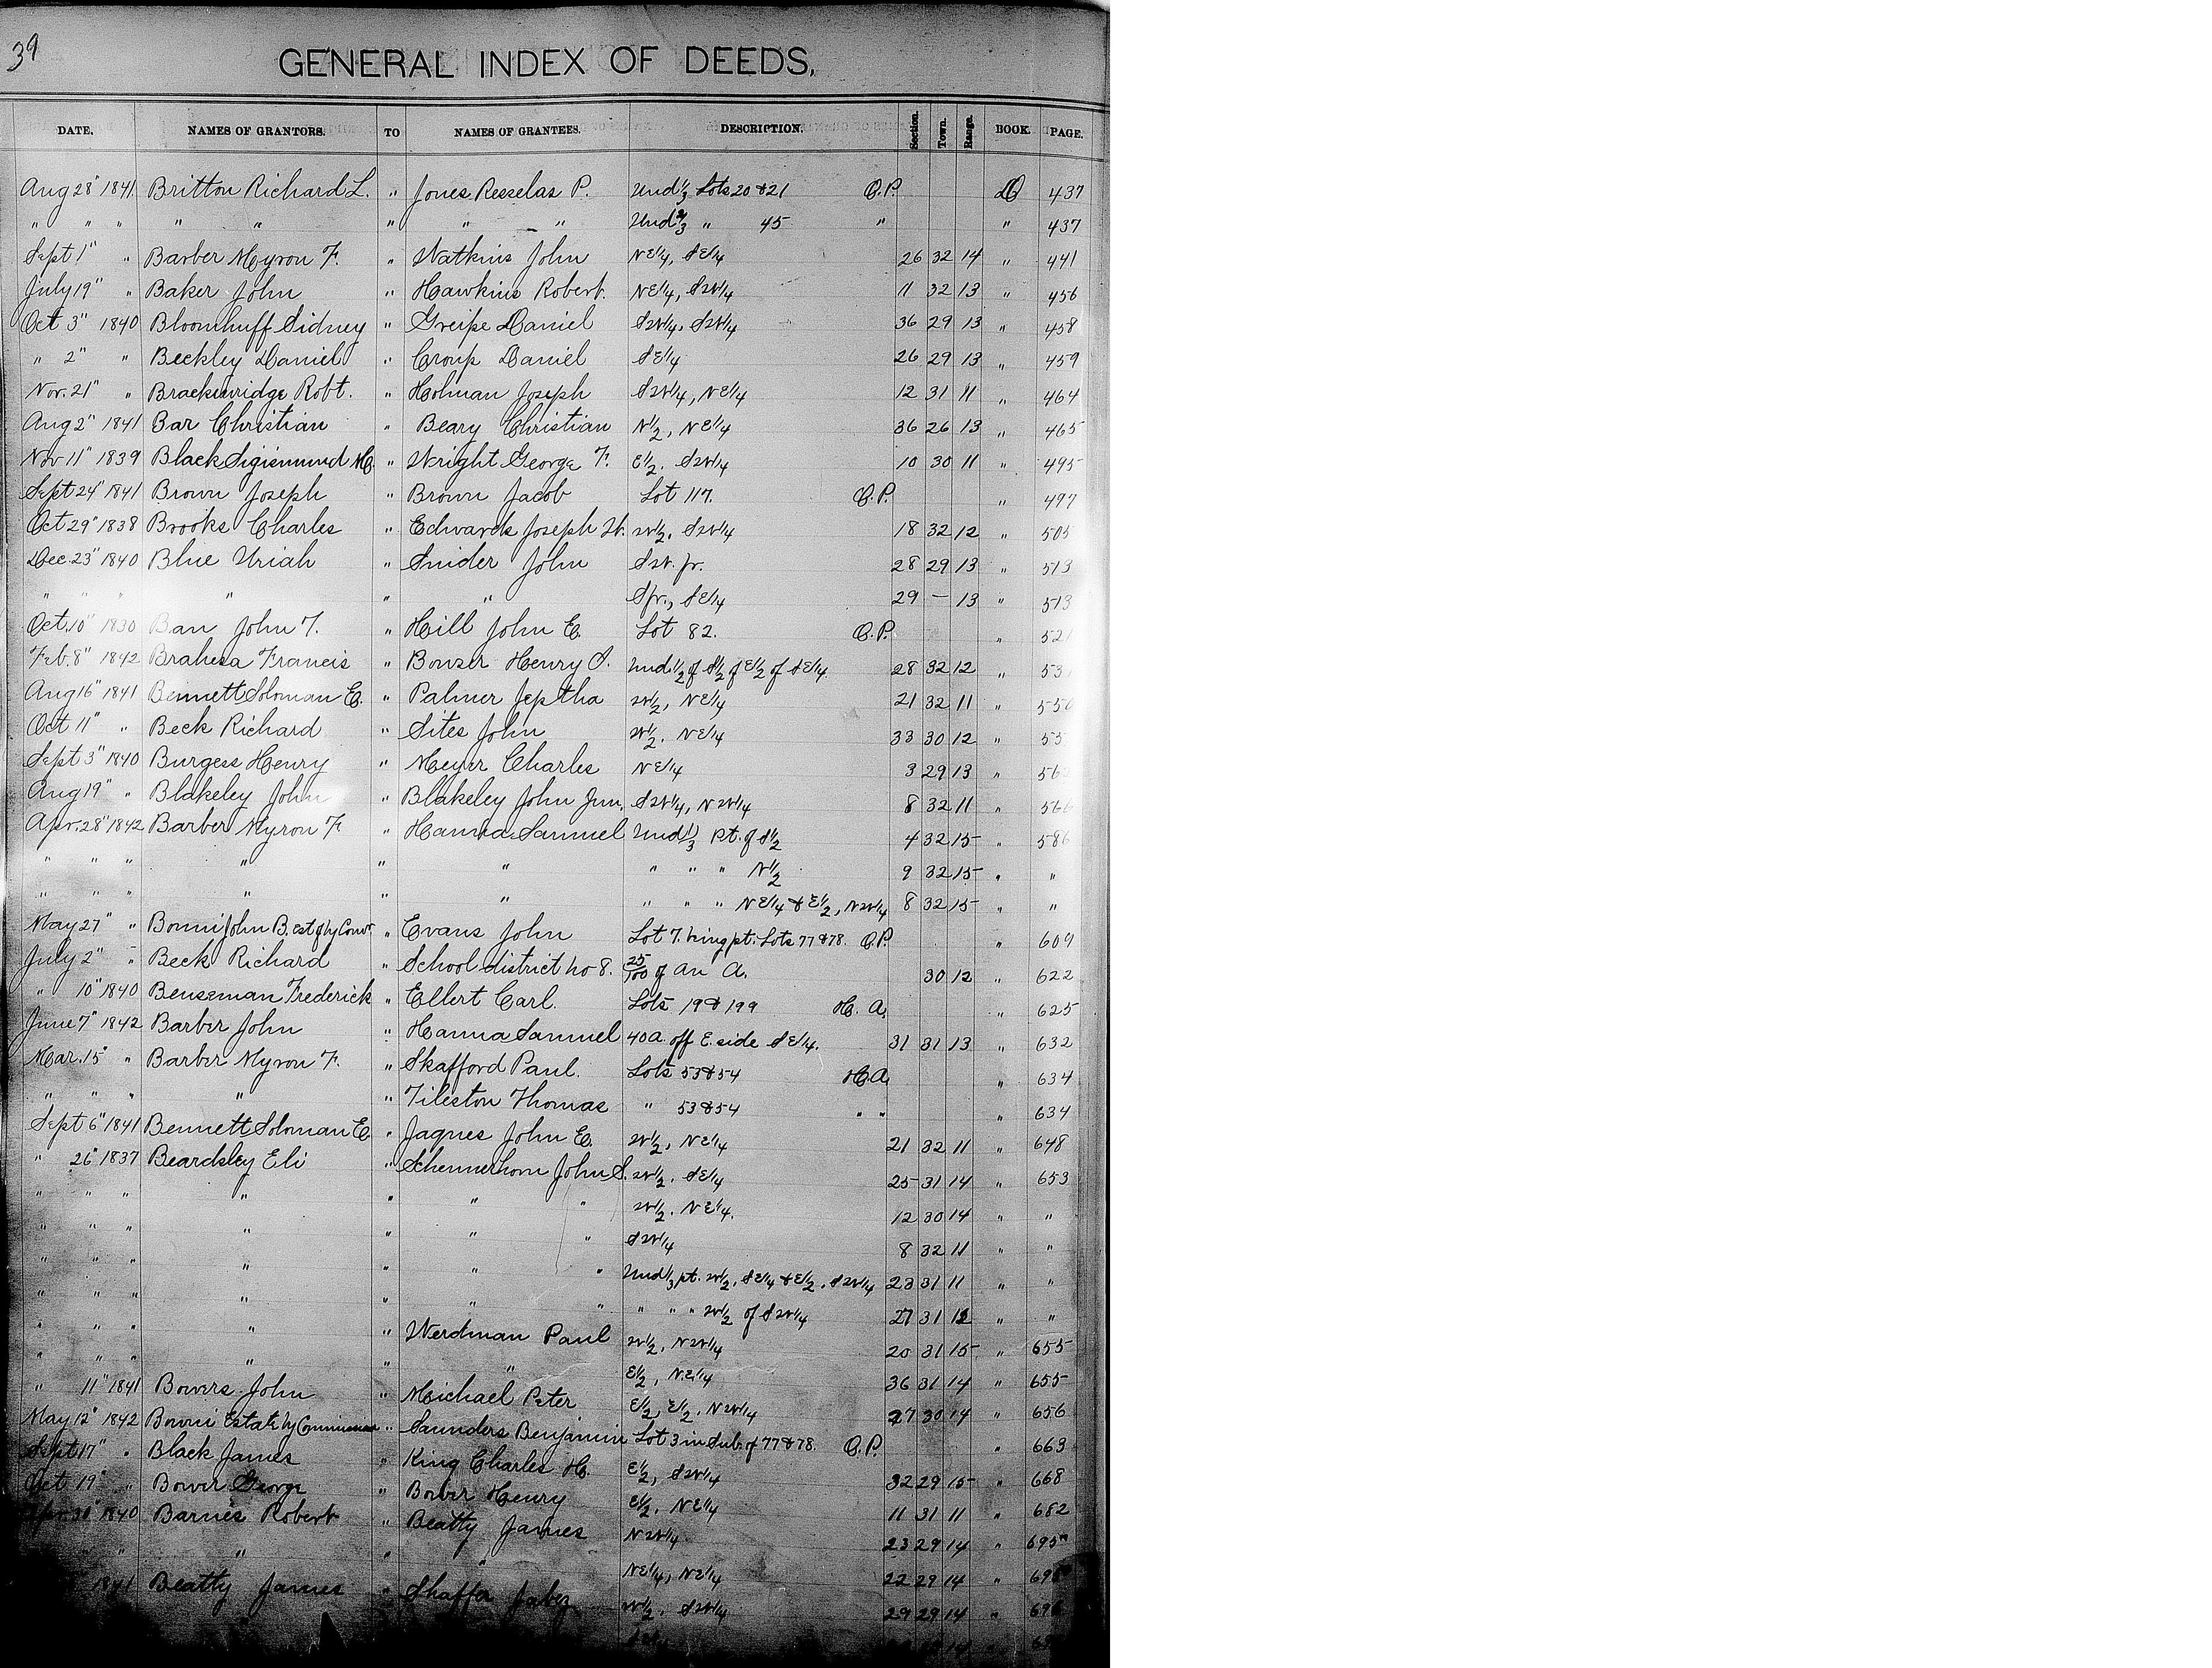 39
GENERAL INDEX OF DEEDS.
DATE. NAMES OF GRANTORS. TO NAMES OF GRANTEES. DESCRIPTION. Section. Town. Range. BOOK. PAGE.
Aug 28" 1841 Britton Richard L. " Jones Resselas P. Und 1/3 Lots 20 & 21 O.P. D 437
" " " " " " " " Und 2/3 " 45 " " 437
Sept 1" " Barber Myron F. " Watkins John NE1/4, SE1/4 26 32 14 " 441
July 19" " Baker John " Hawkins Robert. NE1/4, SW1/4 11 32 13 " 456
Oct 3" 1840 Bloomhuff Sidney " Greipe Daniel SW1/4, SW1/4 36 29 13 " 458
" 2" " Beckley Daniel " Croup Daniel SE1/4 26 29 13 " 459
Nov. 21" " Brackenridge Robt. " Holman Joseph SW1/4, NE1/4 12 31 11 " 464
Aug 2" 1841 Bar Christian " Beary Christian N1/2, NE1/4 36 26 13 " 465
Nov 11" 1839 Black Sigismund M. " Wright George F. E1/2. SW1/4 10 30 11 " 495
Sept 24" 1841 Brown Joseph " Brown Jacob Lot 117. O.P. " 497
Oct 29" 1838 Brooks Charles " Edwards Joseph W. W1/2, SW1/4 18 32 12 " 505
Dec. 23" 1840 Blue Uriah " Snider John SW. fr. 28 29 13 " 513
" " " " " " S fr., SE1/4 29 — 13 " 513
Oct. 10" 1830 Barr John T. " Hill John E. Lot 82. O.P. " 521
Feb. 8" 1842 Brahesa Francis " Bowser Henry S. Und 1/2 of S1/2 of E1/2 of SE1/4 28 32 12 " 53
Aug 16" 1841 Bennett Soloman E. " Palmer Jeptha W1/2, NE1/4 21 32 11 " 550
Oct 11" " Beck Richard " Sites John W1/2. NE1/4 33 30 12 " 55
Sept 3" 1840 Burgess Henry " Meyer Charles NE1/4 3 29 13 " 56
Aug 19" " Blakeley John " Blakeley John Jun. SW1/4, NW1/4 8 32 11 " 566
Apr. 28" 1842 Barber Myron F. " Hanna Samuel Und 1/3 pt. of S1/2 4 32 15 " 586
" " " " " " " " " N1/2 9 32 15 " "
" " " " " " " " " NE1/4 & E1/2, NW1/4 8 32 15 " "
May 27" " John B. est of by Comr. " Evans John Lot 7. being pt. Lots 77 & 78. O.P. " 609
July 2" " Beck Richard " School district no 8. 25/100 of an A. 30 12 " 622
" 10" 1840 Benseman Frederick " Ellert Carl. Lots 19 & 199 H. A. " 625
June 7" 1842 Barber John " Hanna Samuel 40 a. off E. side SE1/4. 31 31 13 " 632
Mar. 15" " Barber Myron F. " Skafford Paul. Lots 53 & 54 H.A. " 634
" " " " " Tileston Thomas " 53 & 54 " " " 634
Sept 6" 1841 Bennett Soloman E. " Jaques John E. W1/2, NE1/4 21 32 11 " 648
" 26" 1837 Beardsley Eli " Schermerhorn John S. W1/2. SE1/4 25 31 14 " 653
" " " " " " " W1/2. NE1/4. 12 30 14 " "
" " " " " " " SW1/4 8 32 11 " "
" " " " " " " Und 1/3 pt. W1/2, SE1/4 & E1/2. SW1/4 23 31 11 " "
" " " " " " " " " " W1/2 of SW1/4 27 31 12 " "
" " " " " Werdman Paul W1/2, NW1/4 20 31 15 " 655
" " " " " " E1/2, NE1/4 36 31 14 " 655
" 11" 1841 Bowers John " Michael Peter E1/2, E1/2, NW1/4 27 30 14 " 656
May 12" 1842 Estate by " Saunders Benjamin Lot 3 in Sub. of 77 & 78. O.P. " 663
Sept 17" " Black James " King Charles H. E1/2, SW1/4 32 29 15 " 668
Oct 19" " Bower George " Bower Henry E1/2. NE1/4 11 31 11 " 682
Apr. 30" 1840 Barnes Robert " Beatty James NW1/4 23 29 14 " 695
" " " " NE1/4, NE1/4 22 29 14 " 69
1841 Beatty James " Shaffer W1/2. SW1/4 29 29 14 " 696